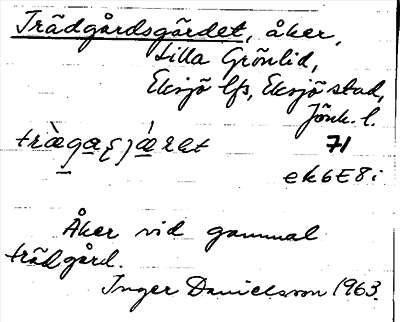 Trädgårdsgärdet, åker,
Lilla Grönlid,
Eksjö lfs, Eksjö stad,
Jönk. l.
71
ek6E8i
Åker vid gammal
trädgård.
Inger Danielsson 1963.